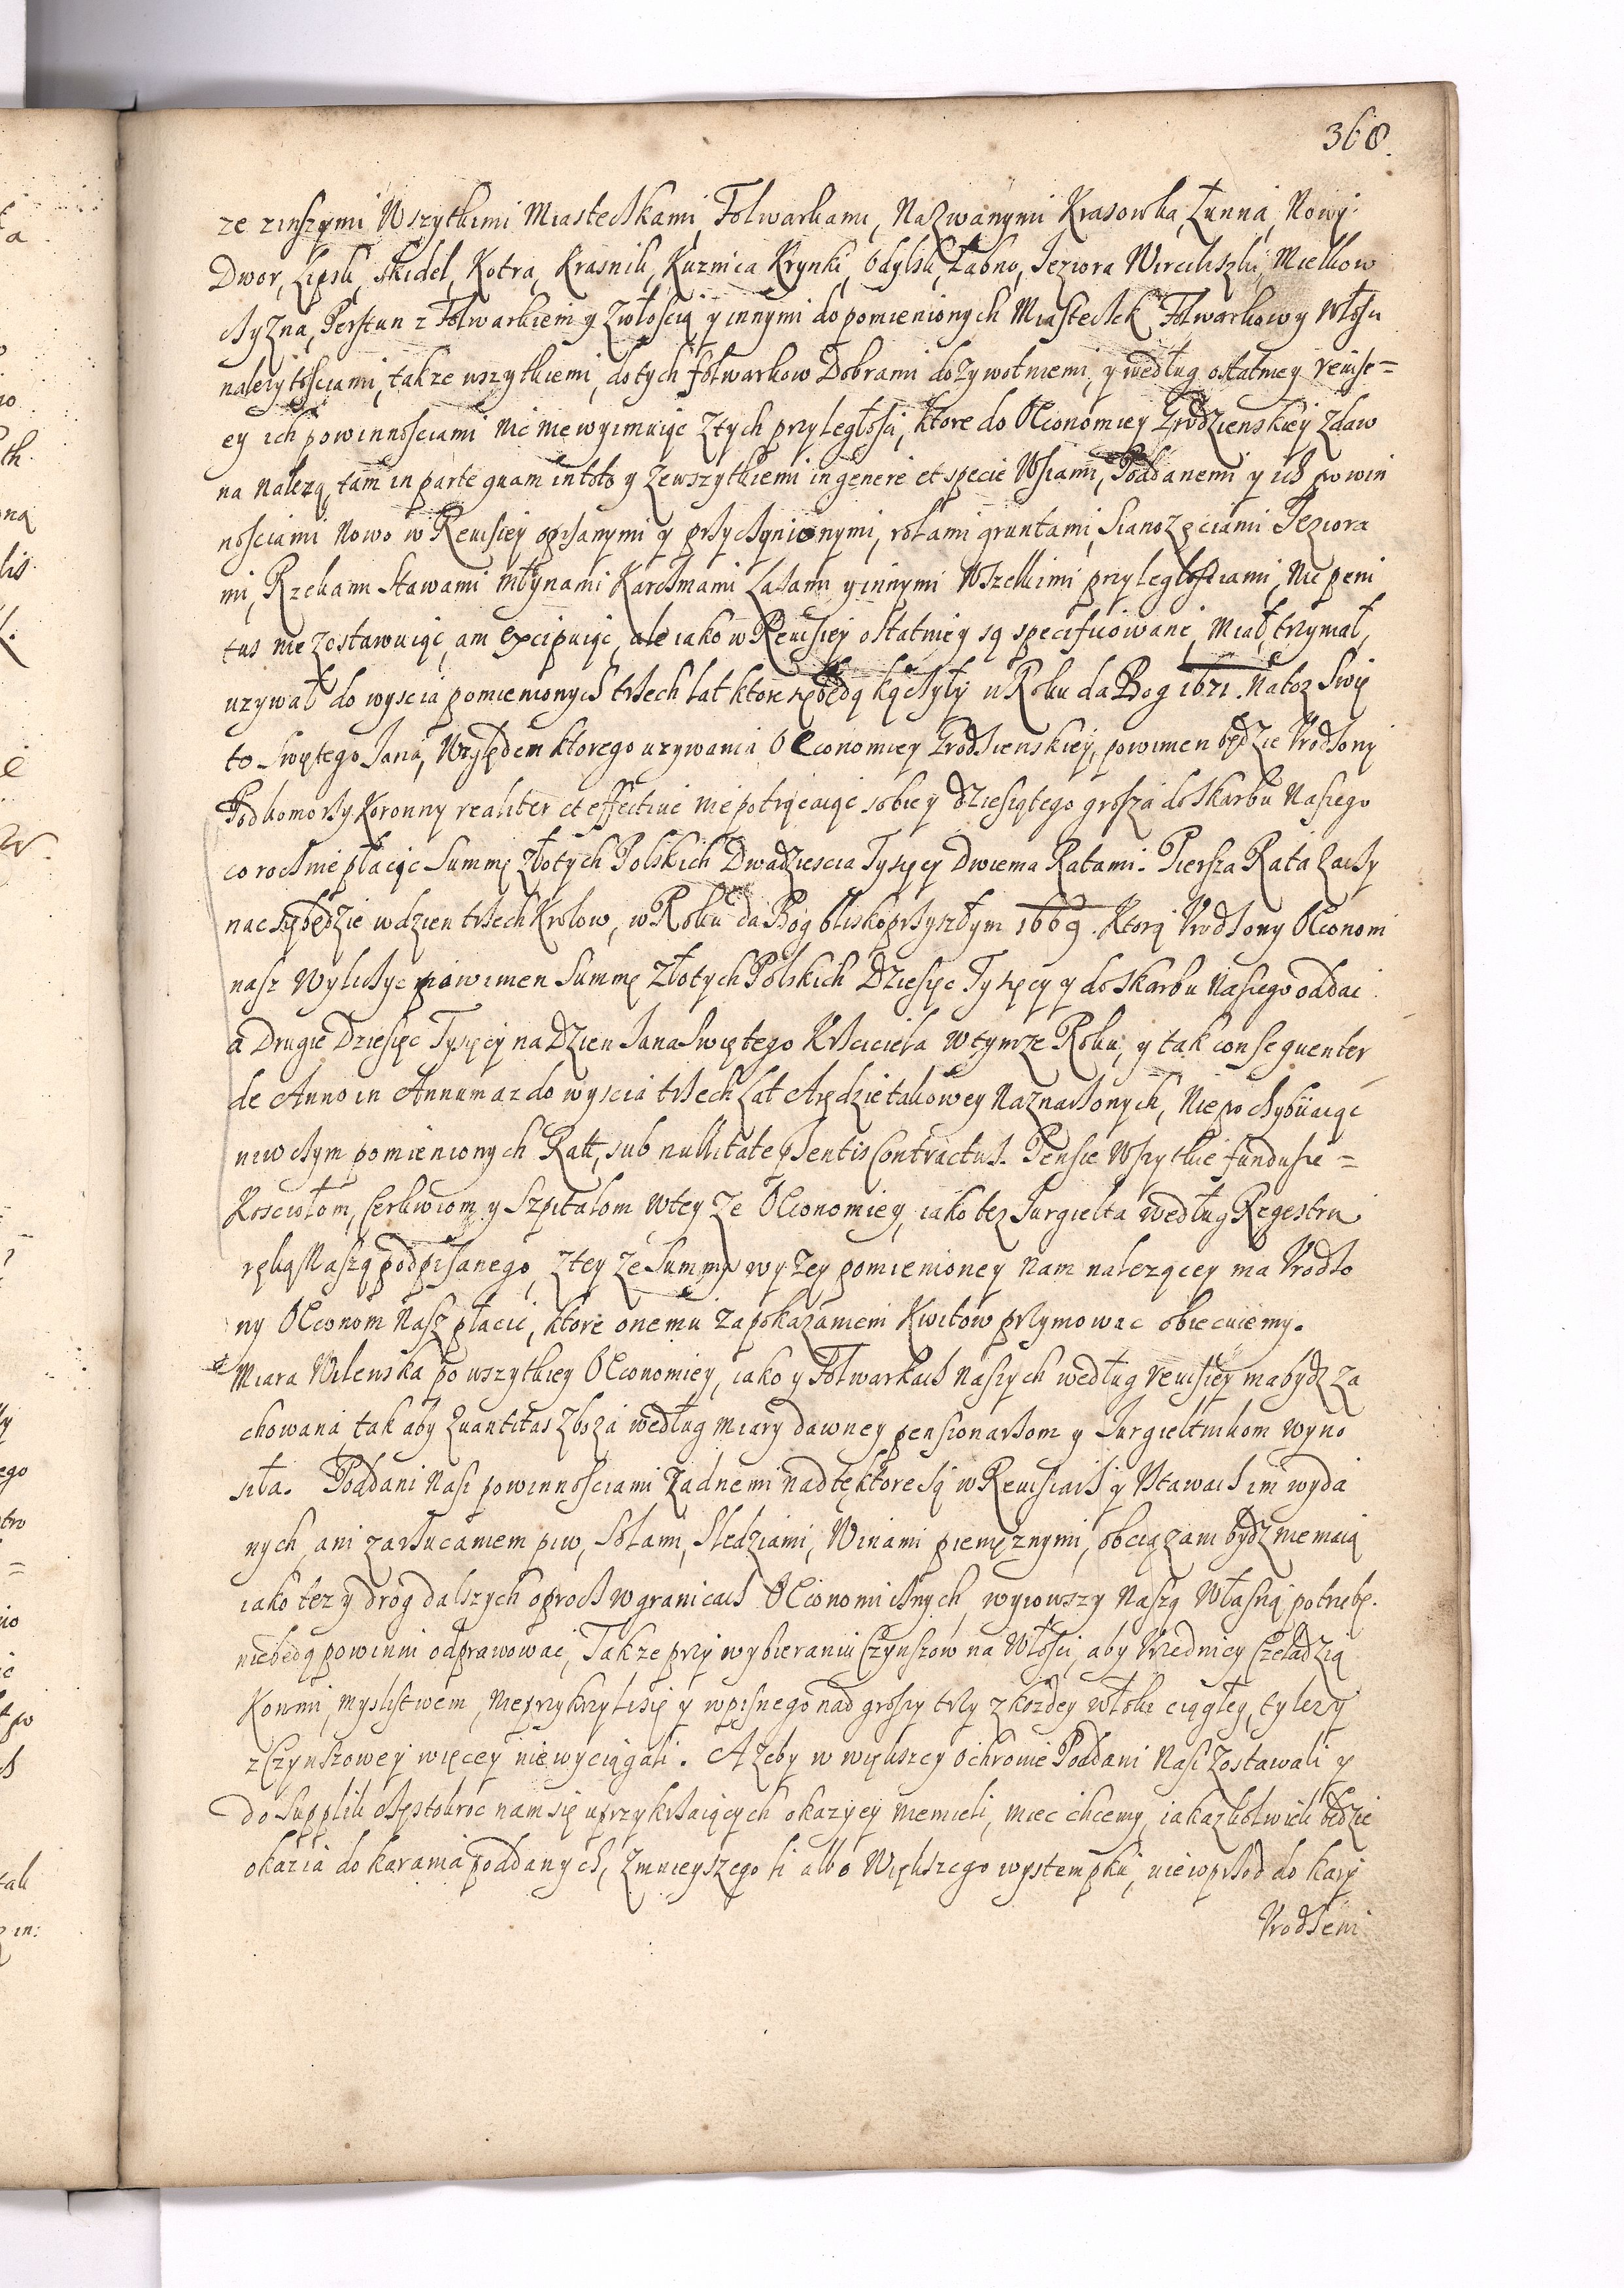 368.
ze zinszymi Wszytkimi Miasteczkami, Folwarkami, Nazwanymi Krasowka, Łunna, Nowy
Dwor, Lipsk, Skidel, Kotra, Krasnik, Kuznica Krynki, Odylsk, Łabno, Jeziora Wierciliszki, Mielkow
czyzna, Perstun z Folwarkiem y Zwłoscią y innymi do pomienionych Miasteczk Folwarkow y Włosci
nalezytosciami, takze wszytkiemi, do tych folwarkow Dobrami dozywotniemi, y według ostatniey reuisi=
ey ich powinnosciami nic nie wyimuiąc z tych przyległosci, ktore do OEconomiey Grodzienskiey zdaw
na nalezą, tam in parte quam in toto y ze wszytkiemi in genere et specie Wsiami, Poddanemi y ich powin
nosciami nowo w Reuisiey opisanymi y przyczynionymi, rolami gruntami, Sianozęciami Jeziora
mi, Rzekami Stawami Młynami Karczmami Lasami y innymi Wszelkimi przyległosciami, Nic peni
tus nie zostawuiąc, ani excipuiąc, ale iako w Reuisiey ostatniey są specificowane, Miał, trzymał,
uzywał do wyscia pomienionych trzech lat ktore się będą kączyły w Roku da Bog 1671. Na toz Swię
to Swiętego Jana, Względem ktorego uzywania OEconomiey Grodzienskiey, powinien będzie Vrodzony
Podkomorzy Koronny realiter et effectiue nie potrącaiąc sobie y dziesiątego grosza do skarbu Naszego
co rocznie płacąc Summę złotych Polskich Dwadziescia Tysięcy Dwiema Ratami. Piersza Rata zaczy
nac się będzie w dzien trzech Krolow, w Roku da Bog blisko przyszłym 1669. Ktorą Vrodzony OEconom
nasz Wyliczyc powinien Summę Złotych Polskich Dziesięc Tysięcy y do skarbu Naszego oddac
a Drugie Dziesięc Tysięcy na Dzien Jana Swiętego Krzciciela w tymze Roku, y tak consequenter
de Anno in Annum az do wyscia trzech Lat Arędzie takowey Naznaczonych, Nie pochybiaiąc
niwczym pomienionych Ratt, sub nullitate psentis Contractus. Pensie Wszytkie fundusze=
Kosciołom, Cerkwiom y Szpitalom w tey ze OEconomiey, iako tez Jurgielta według Regestru
ręką Naszą podpisanego, z tey ze Summy wyzey pomienioney Nam nalezącey ma Vrodzo
ny OEconom Nasz płacic, ktore onemu za pokazaniem Kwitow przymowac obiecuiemy.
Miara Wilenska po wszytkiey OEconomiey, iako y Folwarkach Naszych według reuisiey ma bydz za
chowana tak aby Quantitas zboza według miary dawney pensionarzom y Jurgieltnikom wyno
siła. Poddani Nasi powinnosciami zadnemi nad tę ktore są w Reuisiach y Vstawach im wyda
nych, ani zarzucaniem piw, Solami, Sledziami, Winami pienięznymi, obciązani bydz nie maią
iako tez y drog dalszych oprocz w granicach OEconomicznych, wyiowszy Naszą Własną potrzebę.
nie będą powinni odprawowac, Takze przy wybieraniu Czynszow na Włosci, aby Vrzednicy Czeladzią
Konmi, Myslistwem, Nieprzykrzyli się y wpisnego nad groszy trzy z kozdey włoki ciągłey, tylezy
z Czynszowey więcey nie wyciągali. A zeby w większey ochronie Poddani Nasi zostawali y
do Supplik częstokroc nam się uprzykrzaiących okazyey niemieli, miec chcemy, iakazkolwiek będzie
okazia do karania poddanych, zmnieyszego li albo Większego wystempku, nie wprzod do kary
Vrodzeni